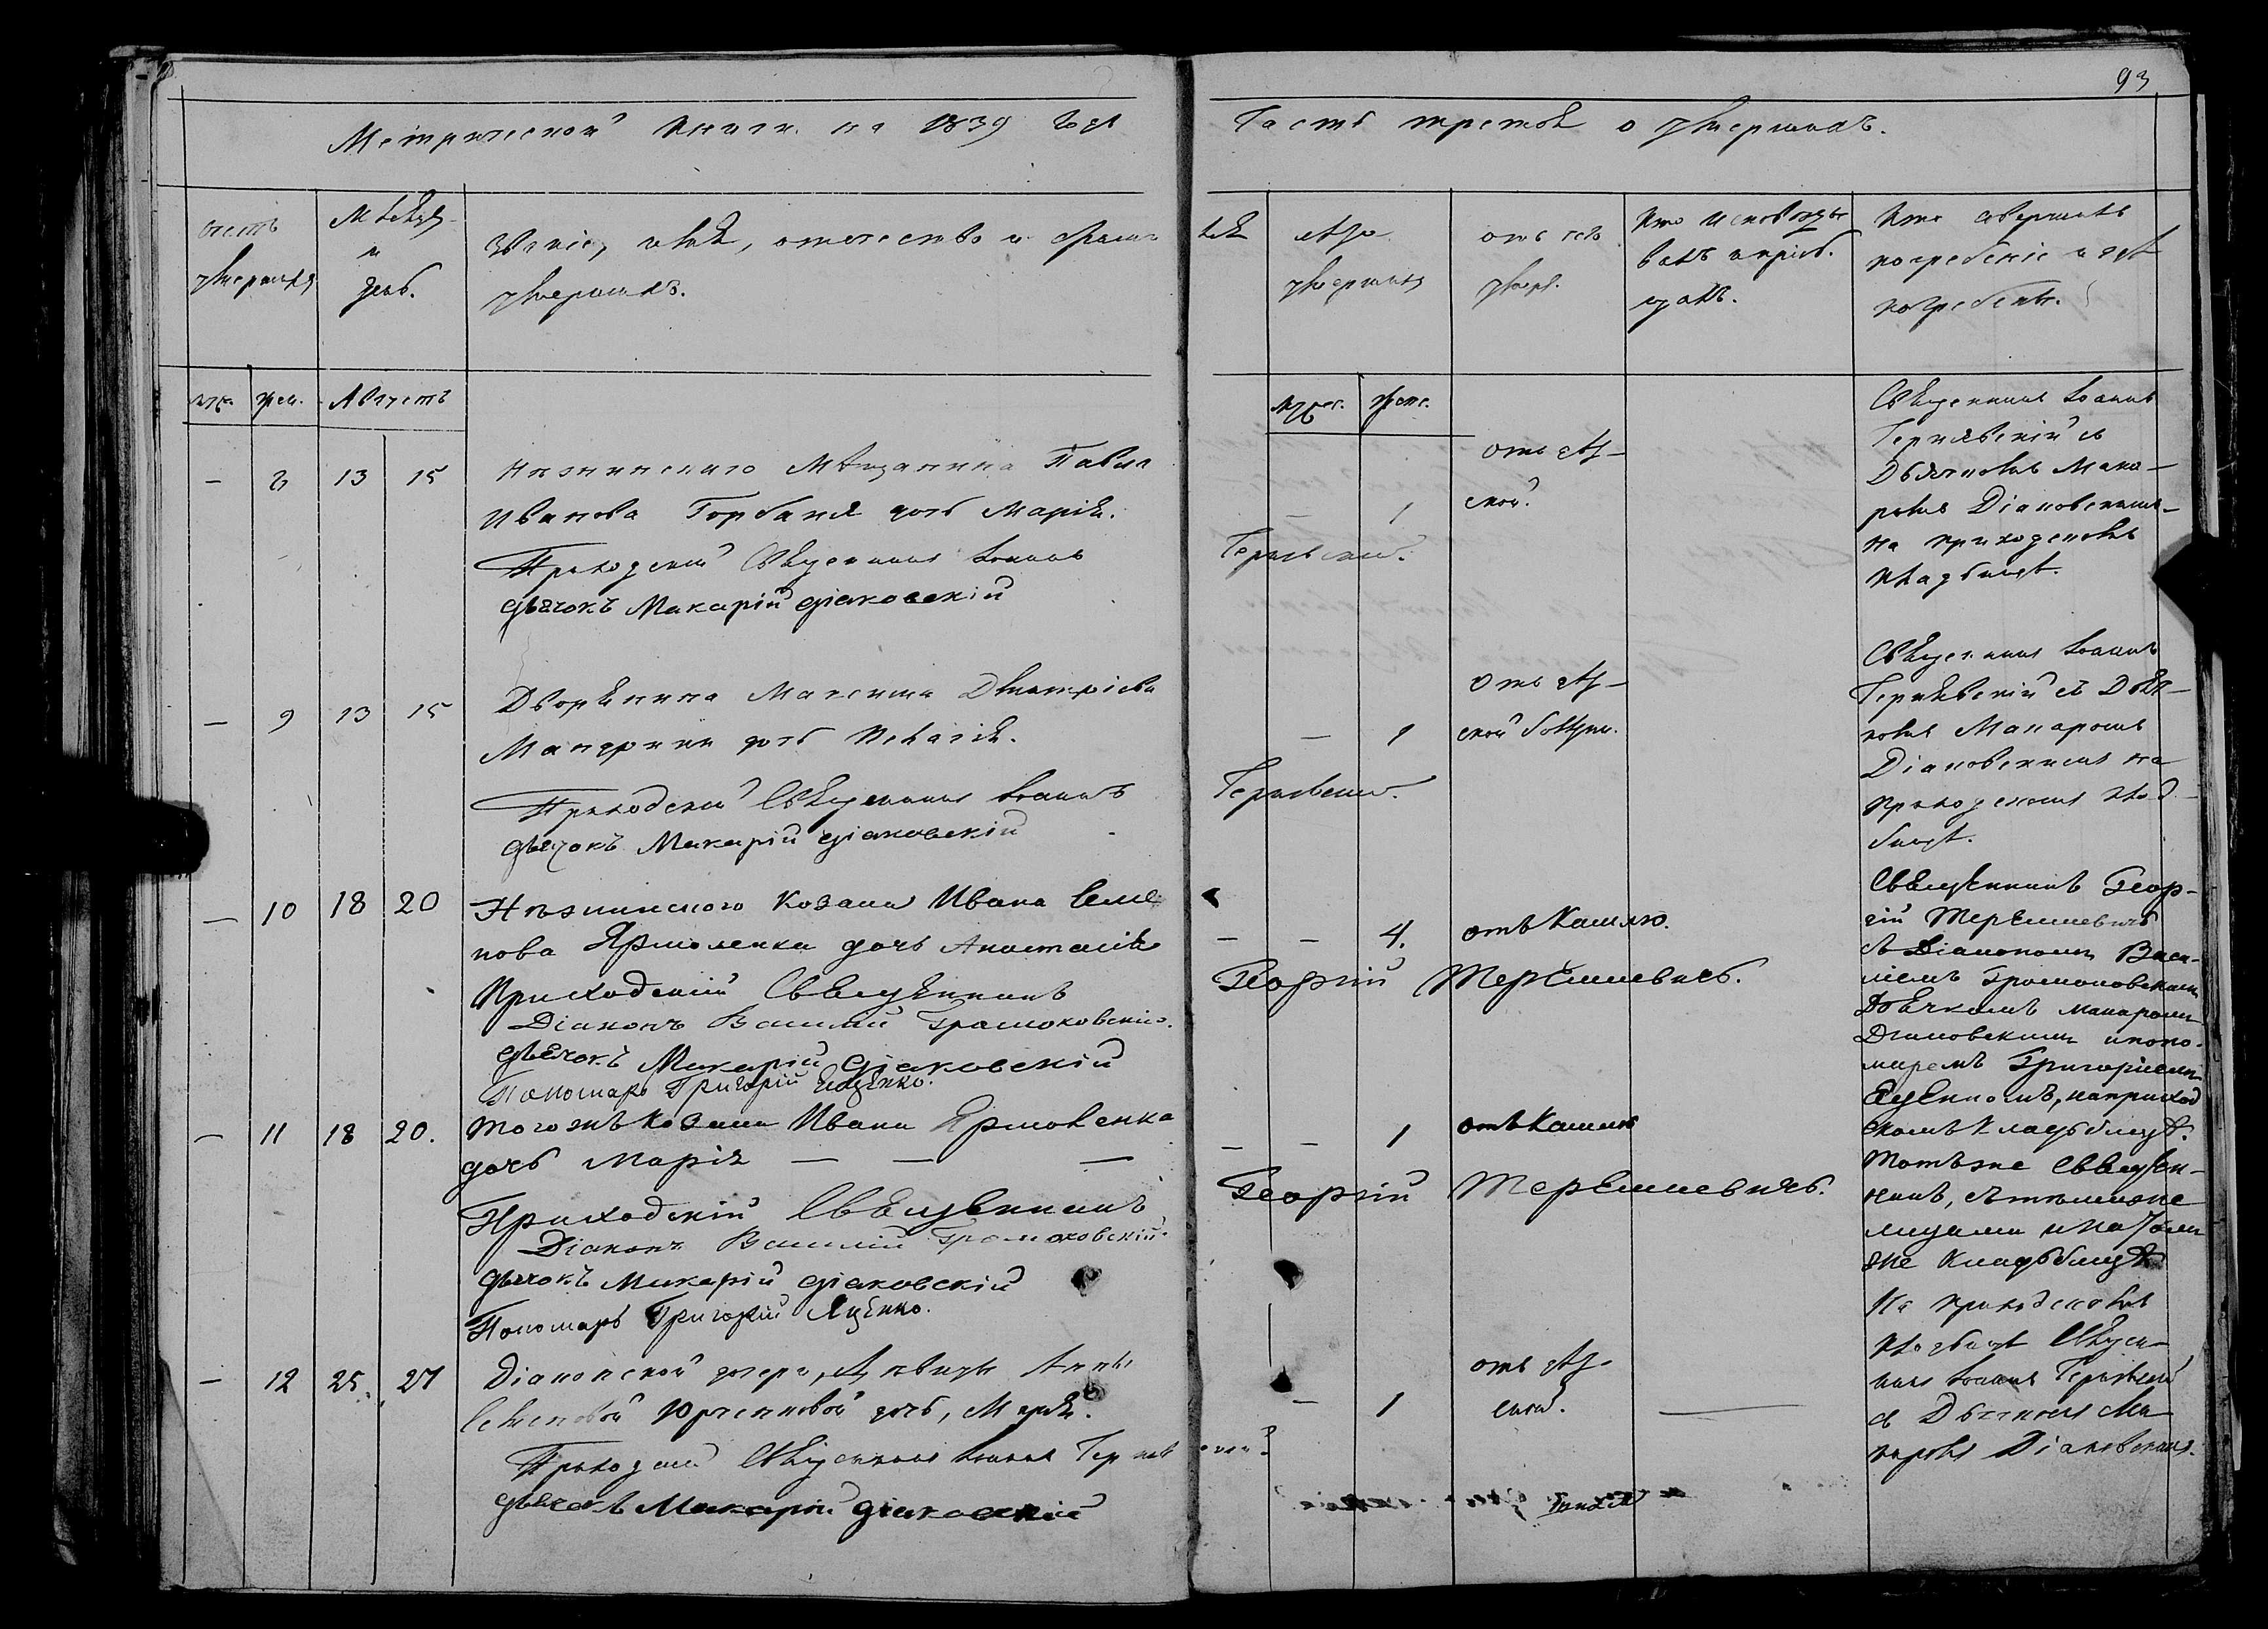 93
Метрической книги на 1839 годъ
Часть третья о умершихъ.
счетъ умершихъ
Мѣсяцъ и день.
званіе, имя, отечество и фами-
умершихъ.
лія
лѣта умершихъ
отъ чего умеръ.
Кто исповѣды-
валъ и пріоб-
щалъ.
Кто совершалъ
погребеніе и гдѣ
погребены.
муж. жен. Августъ
муж. жен.
— 8 13 15
Нѣжинскаго Мѣщанина Павла
Иванова Горбаня дочь Марія.
Приходскій Священникъ Іоаннъ
Чернявскій.
дьячокъ Макарій Діаковскій
— 1
отъ дѣт-
ской.
Священникъ Іоаннъ
Чернявскій съ
Дьячкомъ Мака-
ромъ Діаковскимъ
на приходскомъ
кладбищѣ.
— 9 13 15
Дворянина Максима Дмитріева
дочь
Приходскій Священникъ Іоаннъ
Чернявскій.
дьячокъ Макарій Діаковскій
— 1
отъ дѣт-
ской болѣзни.
Священникъ Іоаннъ
Чернявскій съ Дьяч-
комъ Макаромъ
Діаковскимъ на
приходскомъ клад-
бищѣ.
— 10 18 20
Нѣжинского козака Ивана Семе
нова Ярмоленка дочь Анастасія
Приходскій Священникъ
Георгій Терешкевичъ.
Діаконъ Василій Громоковскій.
дьячокъ Макарій Діаковскій
Пономарь Григорій Яценко.
— — 4.
отъ Кашлю.
Священникъ Геор-
гій Терешкевичъ
съ Діакономъ Васи-
ліемъ Громоковскимъ
Дьячкомъ Макаромъ
Діаковскимъ ипоно-
маремъ Григоріемъ
Яценкомъ, наприход
скомъ Кладьбищѣ.
— 11 18 20.
тогожъ козака Ивана Ярмоленка
дочь Марія — — —
Приходскій Священникъ
Георгій Терешкевичъ.
Діаконъ Василій Громоковскій.
дьячокъ Макарій Діаковскій
Пономарь Григорій Яценко.
— — 1
отъ Кашлю
Тотъже Священ-
никъ, сътѣмиже
лицами инатомъ
же Кладьбищѣ
— 12 25. 27
Діаконской дочери, дѣвицы Анны
Семеновой Юрченковой дочь, Марія.
Приходскій Священникъ Іоаннъ Черняв
скій
дьячокъ Макарій Діаковскій
— 1
отъ дѣт-
ской.
На приходскомъ
кладбищѣ Священ-
никъ Іоаннъ Чернявскій
съ Дьячкомъ Ма-
каромъ Діаковскимъ.